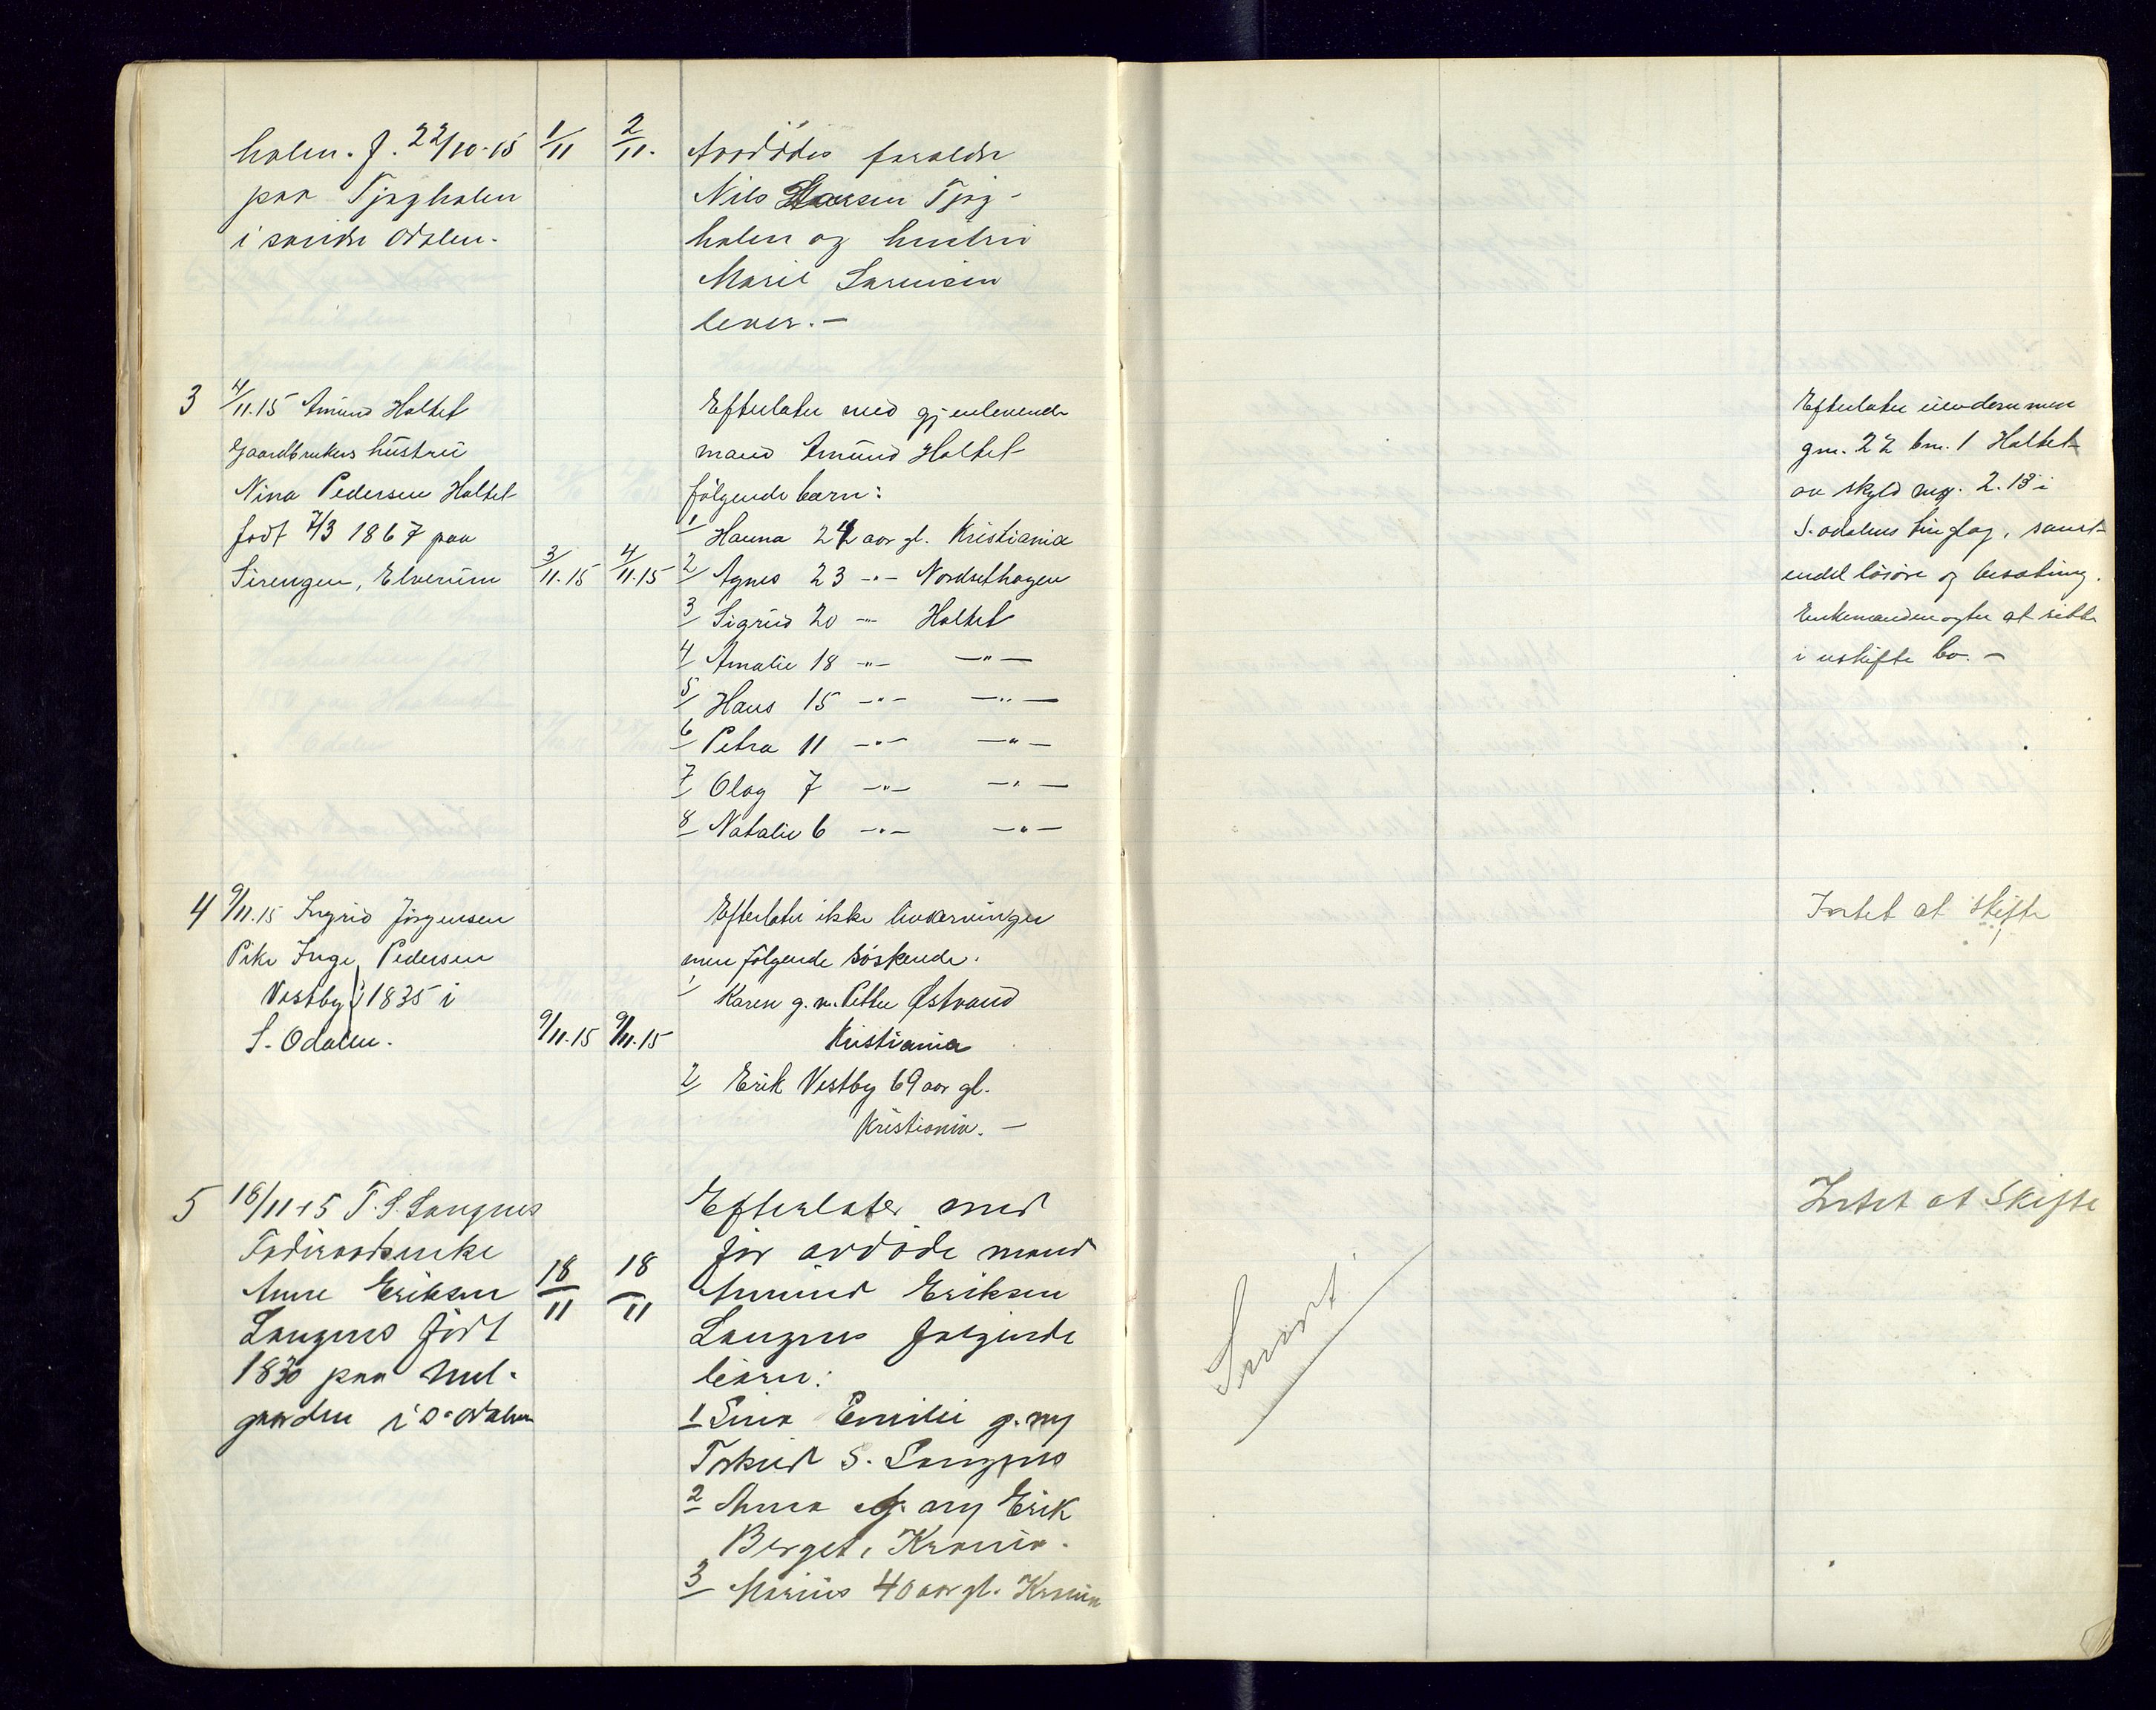 holen. f. 22/10-15 1/11 2/11.
paa Tjugholen
i søndre Odalen.
Avdødes foraldre
Nils Larsen Tjug-
holen og hustru
Marie
lever. -
3 4/11.15 Amund Holtet
Gaardbrukers hustru
Nina Pedersen Holtet
født 7/3 1867 paa
Sirengen, Elverum 3/11.15 4/11.15
Efterlater med gjenlevende
mand Amund Holtet
følgende barn:
1/ Hanna 24 aar gl. Kristiania
2/ Agnes 23 -"- Nordsethagen
3/ Sigrud 20 -"- Holtet
4/ Amalie 18 -"- -"-
5/ Hans 15 -"- -"-
6/ Petra 11 -"- -"-
7/ Olag 7 -"- -"-
8/ Natalie 6 -"- -"-
Efterlater eiendommen
gnr. 22 bnr. 1 Holtet
av skyld mrk. 2.13 i
S. odalens tinglag, samt
endel løsøre og besætning.
Enkemanden agter at sitte
i uskifte bo. -
4 9/11.15 Ingrid Jørgensen
Pike Inge Pedersen
Vestby f 1835 i
S. Odalen. 9/11.15 9/11.15
Efterlater ikke livsarvinger
men følgende søskende.
1/ Karen g. m. Petter Østvand
Kristiania
2/ Erik Vestby 69 aar gl.
Kristiania. -
Intet at skifte
5 18/11 15 T. S. Langnes
Føderaadsenke
Anne Eriksen 18/11 18/11
Langnes født
1830 paa
gaarden i S. Odalen
Efterlater med
før avdøde mand
Amund Eriksen
Langnes følgende
barn:
1 Sina Emilie g. m
Torkild S. Langnes
2 Anna g. m Erik
Berget, Krania.
3 Marius 40 aar gl. Krania
Intet at Skifte
Snart.